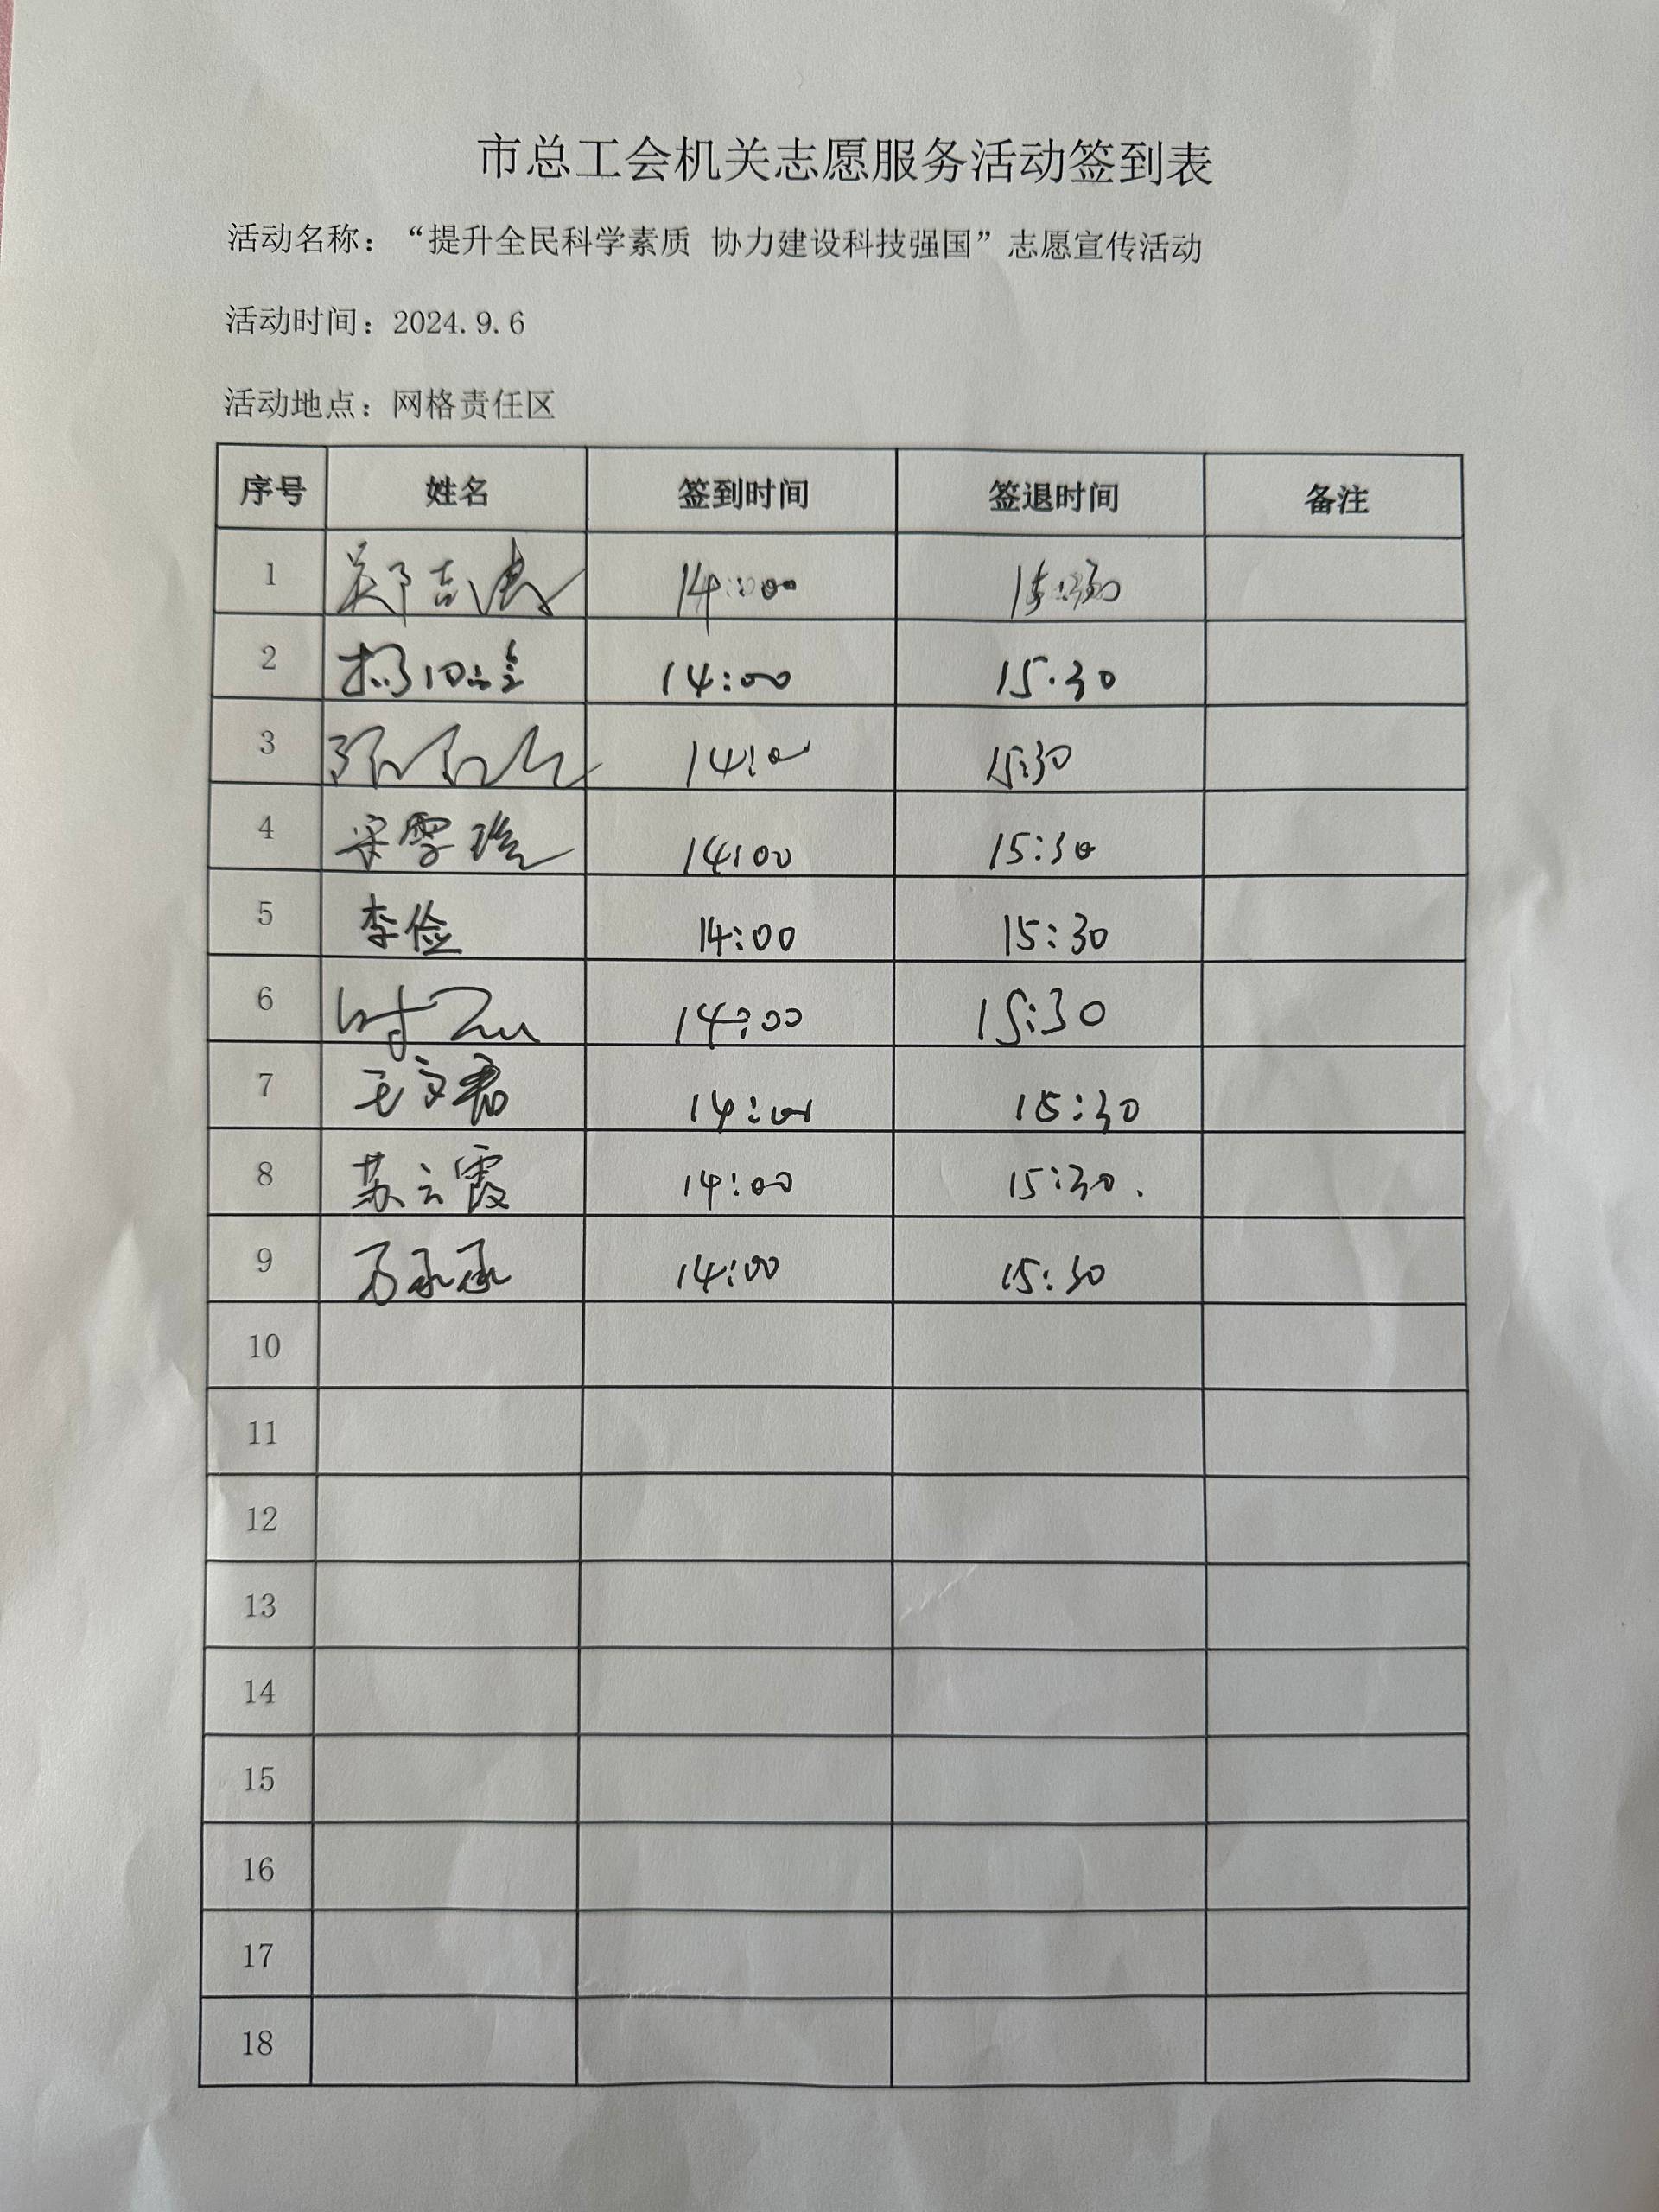 市总工会机关志愿服务活动签到表
活动名称：“提升全民科学素质 协力建设科技强国”志愿宣传活动
活动时间：2024.9.6
活动地点：网格责任区
序号 姓名 签到时间 签退时间 备注
1 14:00 15:30
2 14:00 15.30
3 15:30
4 宋雪 14:00 15:30
5 李俭 14:00 15:30
6 14:00 15:30
7 王文君 14:00 15:30
8 苏云霞 14:00 15:30.
9 万承承 14:00 15:30
10
11
12
13
14
15
16
17
18